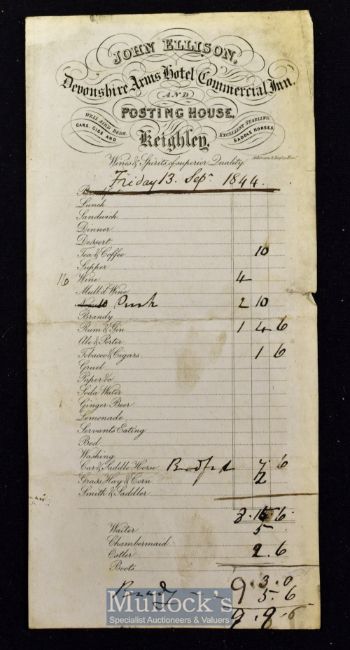 JOHN ELLISON,
Devonshire Arms Hotel Commercial Inn.
AND
POSTING HOUSE,
WELL AIRED BEDS,
CARS GIGS AND
EXCELLENT STABLING,
SADDLE HORSES
Keighley,
Wines & Spirits of superior Quality.
Friday 13. Sepr 1844.
Lunch
Sandwich
Dinner
Dessert
Tea & Coffee 10
Supper
16 Wine 4
Mull'd Wine
2 10
Brandy
Rum & Gin 1 4 6
Ale & Porter
Tobacco & Cigars 1 6
Gruel
Paper &c
Soda Water
Ginger Beer
Lemonade
Servants Eating
Bed
Washing
Car & Saddle Horse 7 6
Grass Hay & Corn 2
Smith & Saddler
8 15 6
Waiter 5
Chambermaid
Ostler 2.6
Boots
9.3.0
5.6
9.8.6
Mullock's
Specialist Auctioneers & Valuers